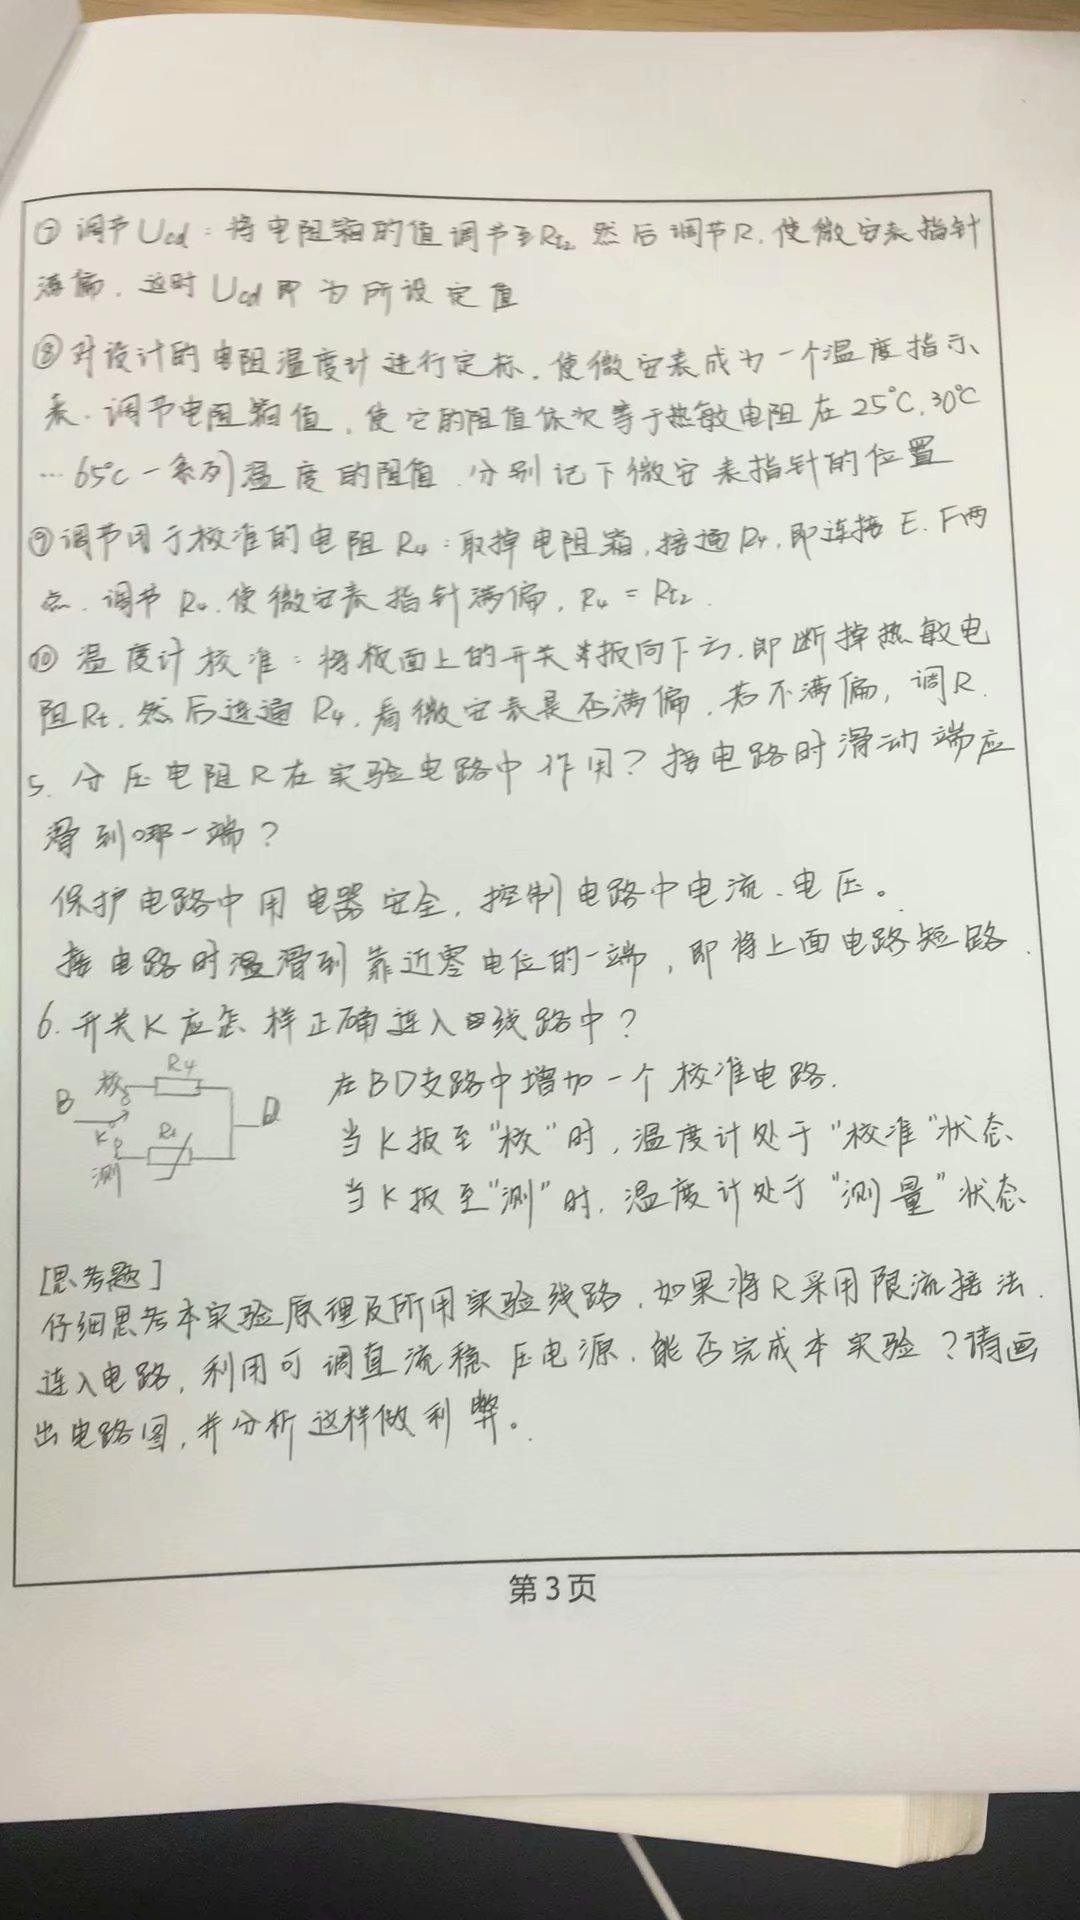 ⑦ 调节Ucd：将电阻箱的值调节至Rt2 然后调节R，使微安表指针
满偏，这时Ucd即为所设定值
⑧对设计的电阻温度计进行定标，使微安表成为一个温度指示
表，调节电阻箱值，使它的阻值依次等于热敏电阻在25℃，30℃
… 65℃一系列温度的阻值，分别记下微安表指针的位置
⑨调节用于校准的电阻R4：取掉电阻箱，接通R4，即连接E、F两
点，调节R4，使微安表指针满偏，R4 = Rt2.
⑩ 温度计校准：将板面上的开关扳向下方，即断掉热敏电
阻Rt，然后连通R4，看微安表是否满偏，若不满偏，调R.
5. 分压电阻R在实验电路中作用？接电路时滑动端应
滑到哪一端？
保护电路中用电器安全，控制电路中电流、电压。
接电路时滑到靠近零电位的一端，即将上面电路短路.
6. 开关K应怎样正确连入线路中？
校 R4
B K D
Rt
测
在BD支路中增加一个校准电路.
当K扳至“校”时，温度计处于“校准”状态
当K扳至“测”时，温度计处于“测量”状态
[思考题]
仔细思考本实验原理及所用实验线路，如果将R采用限流接法，
连入电路，利用可调直流稳压电源，能否完成本实验？请画
出电路图，并分析这样做利弊。
第3页